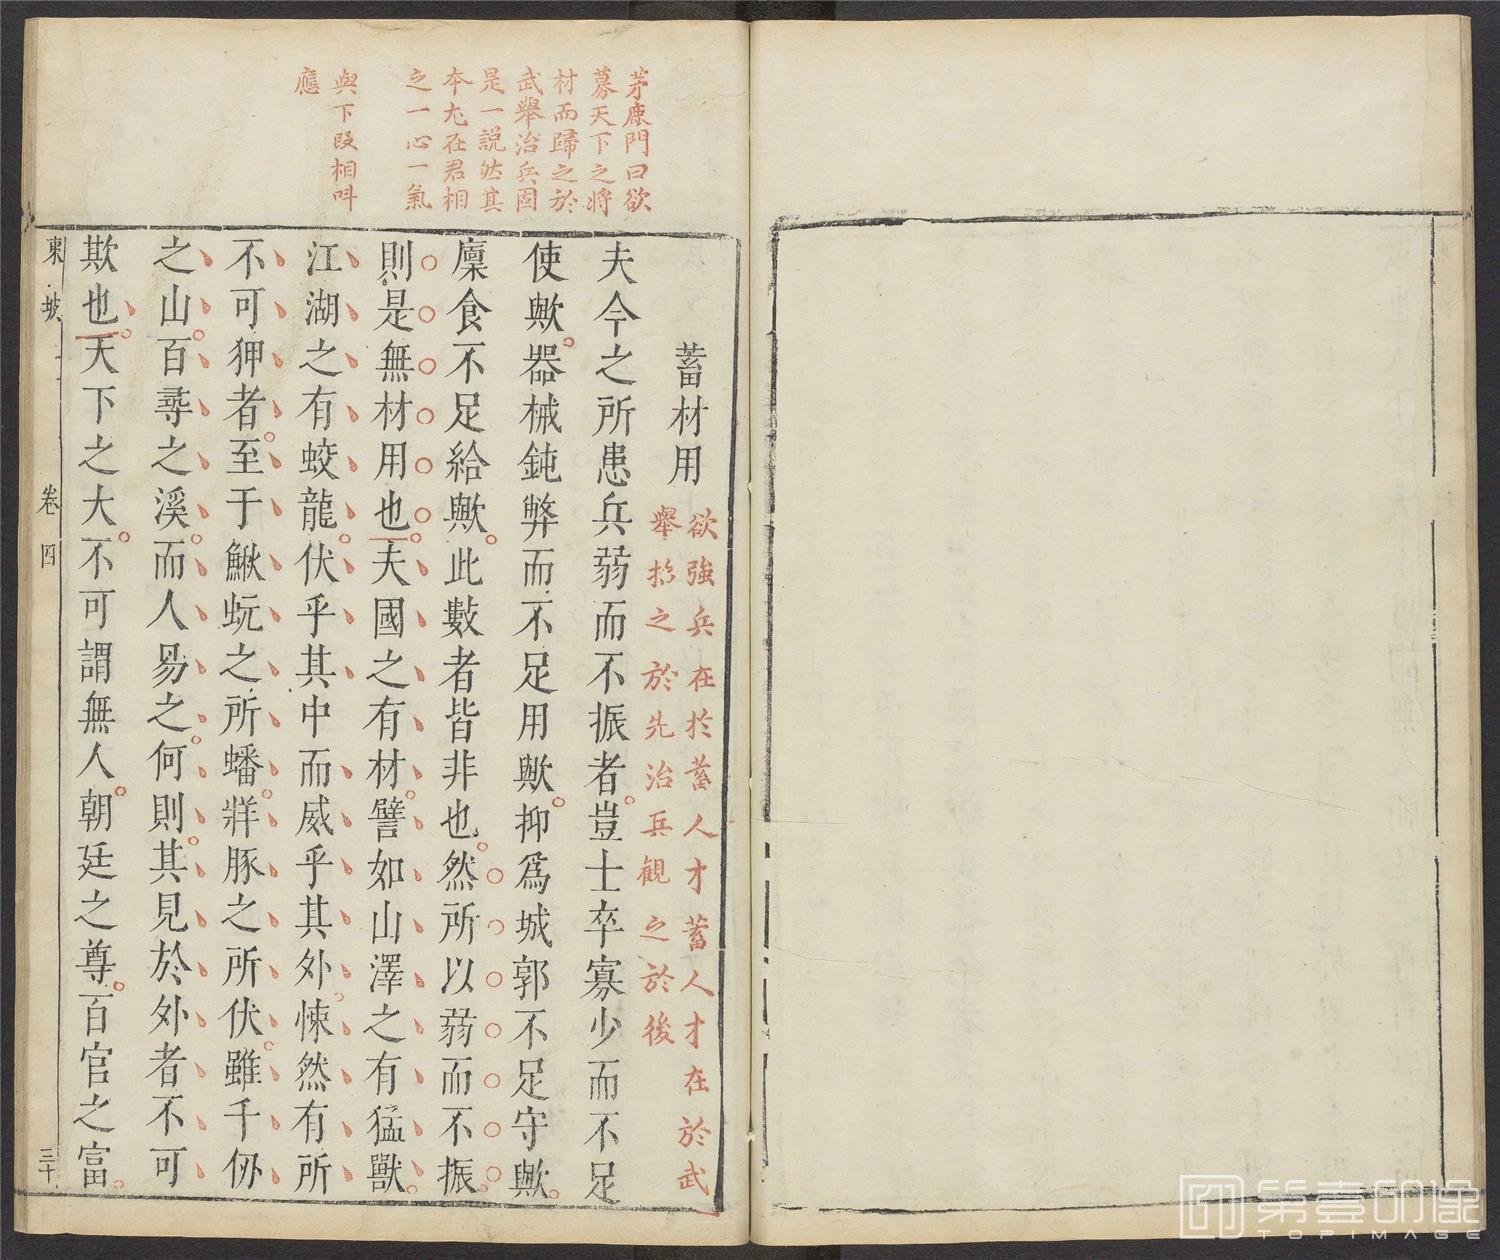 茅鹿門曰欲
募天下之將
材而歸之於
武舉治兵固
是一說然其
本尤在君相
之一心一氣
與下段相呌
應
蓄材用
欲強兵在於蓄人才蓄人才在於武
舉招之於先治兵觀之於後
夫今之所患兵弱而不振者豈士卒寡少而不足
使歟器械鈍弊而不足用歟抑爲城郭不足守歟
廩食不足給歟此數者皆非也然所以弱而不振
則是無材用也夫國之有材譬如山澤之有猛獸
江湖之有蛟龍伏乎其中而威乎其外悚然有所
不可狎者至于鰍蚖之所蟠牂豚之所伏雖千仞
之山百尋之溪而人易之何則其見於外者不可
欺也天下之大不可謂無人朝廷之尊百官之富
東坡 卷四 三十
第壹印像
TOPIMAGE